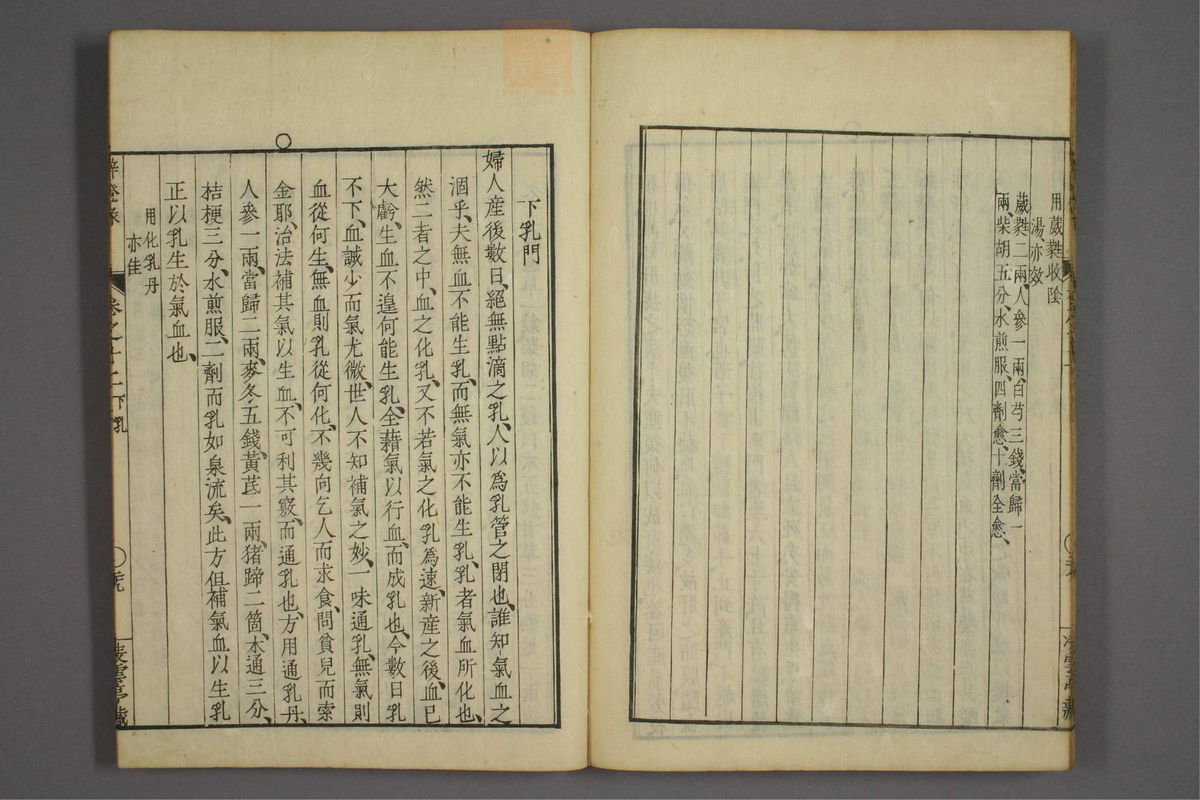 用葳蕤收陰
湯亦效
葳蕤二兩、人參一兩、白芍三錢、當歸一
兩、柴胡五分、水煎服、四劑愈、十劑全愈、
下乳門
婦人產後數日、絕無點滴之乳、人以為乳管之閉也、誰知氣血之
涸乎、夫無血不能生乳、而無氣亦不能生乳、乳者氣血所化也、
然二者之中、血之化乳、又不若氣之化乳為速、新產之後、血已
大虧、生血不遑、何能生乳、全藉氣以行血、而成乳也、今數日乳
不下、血誠少而氣尤微、世人不知補氣之妙、一味通乳、無氣則
血從何生、無血則乳從何化、不幾向乞人而求食、問貧兒而索
金耶、治法補其氣以生血、不可利其竅、而通乳也、方用通乳丹、
人參一兩、當歸二兩、麥冬五錢、黃芪一兩、猪蹄二箇、木通三分、
桔梗三分、水煎服、二劑而乳如泉流矣、此方但補氣血以生乳
正以乳生於氣血也、
用化乳丹
亦佳
卷之十二下乳